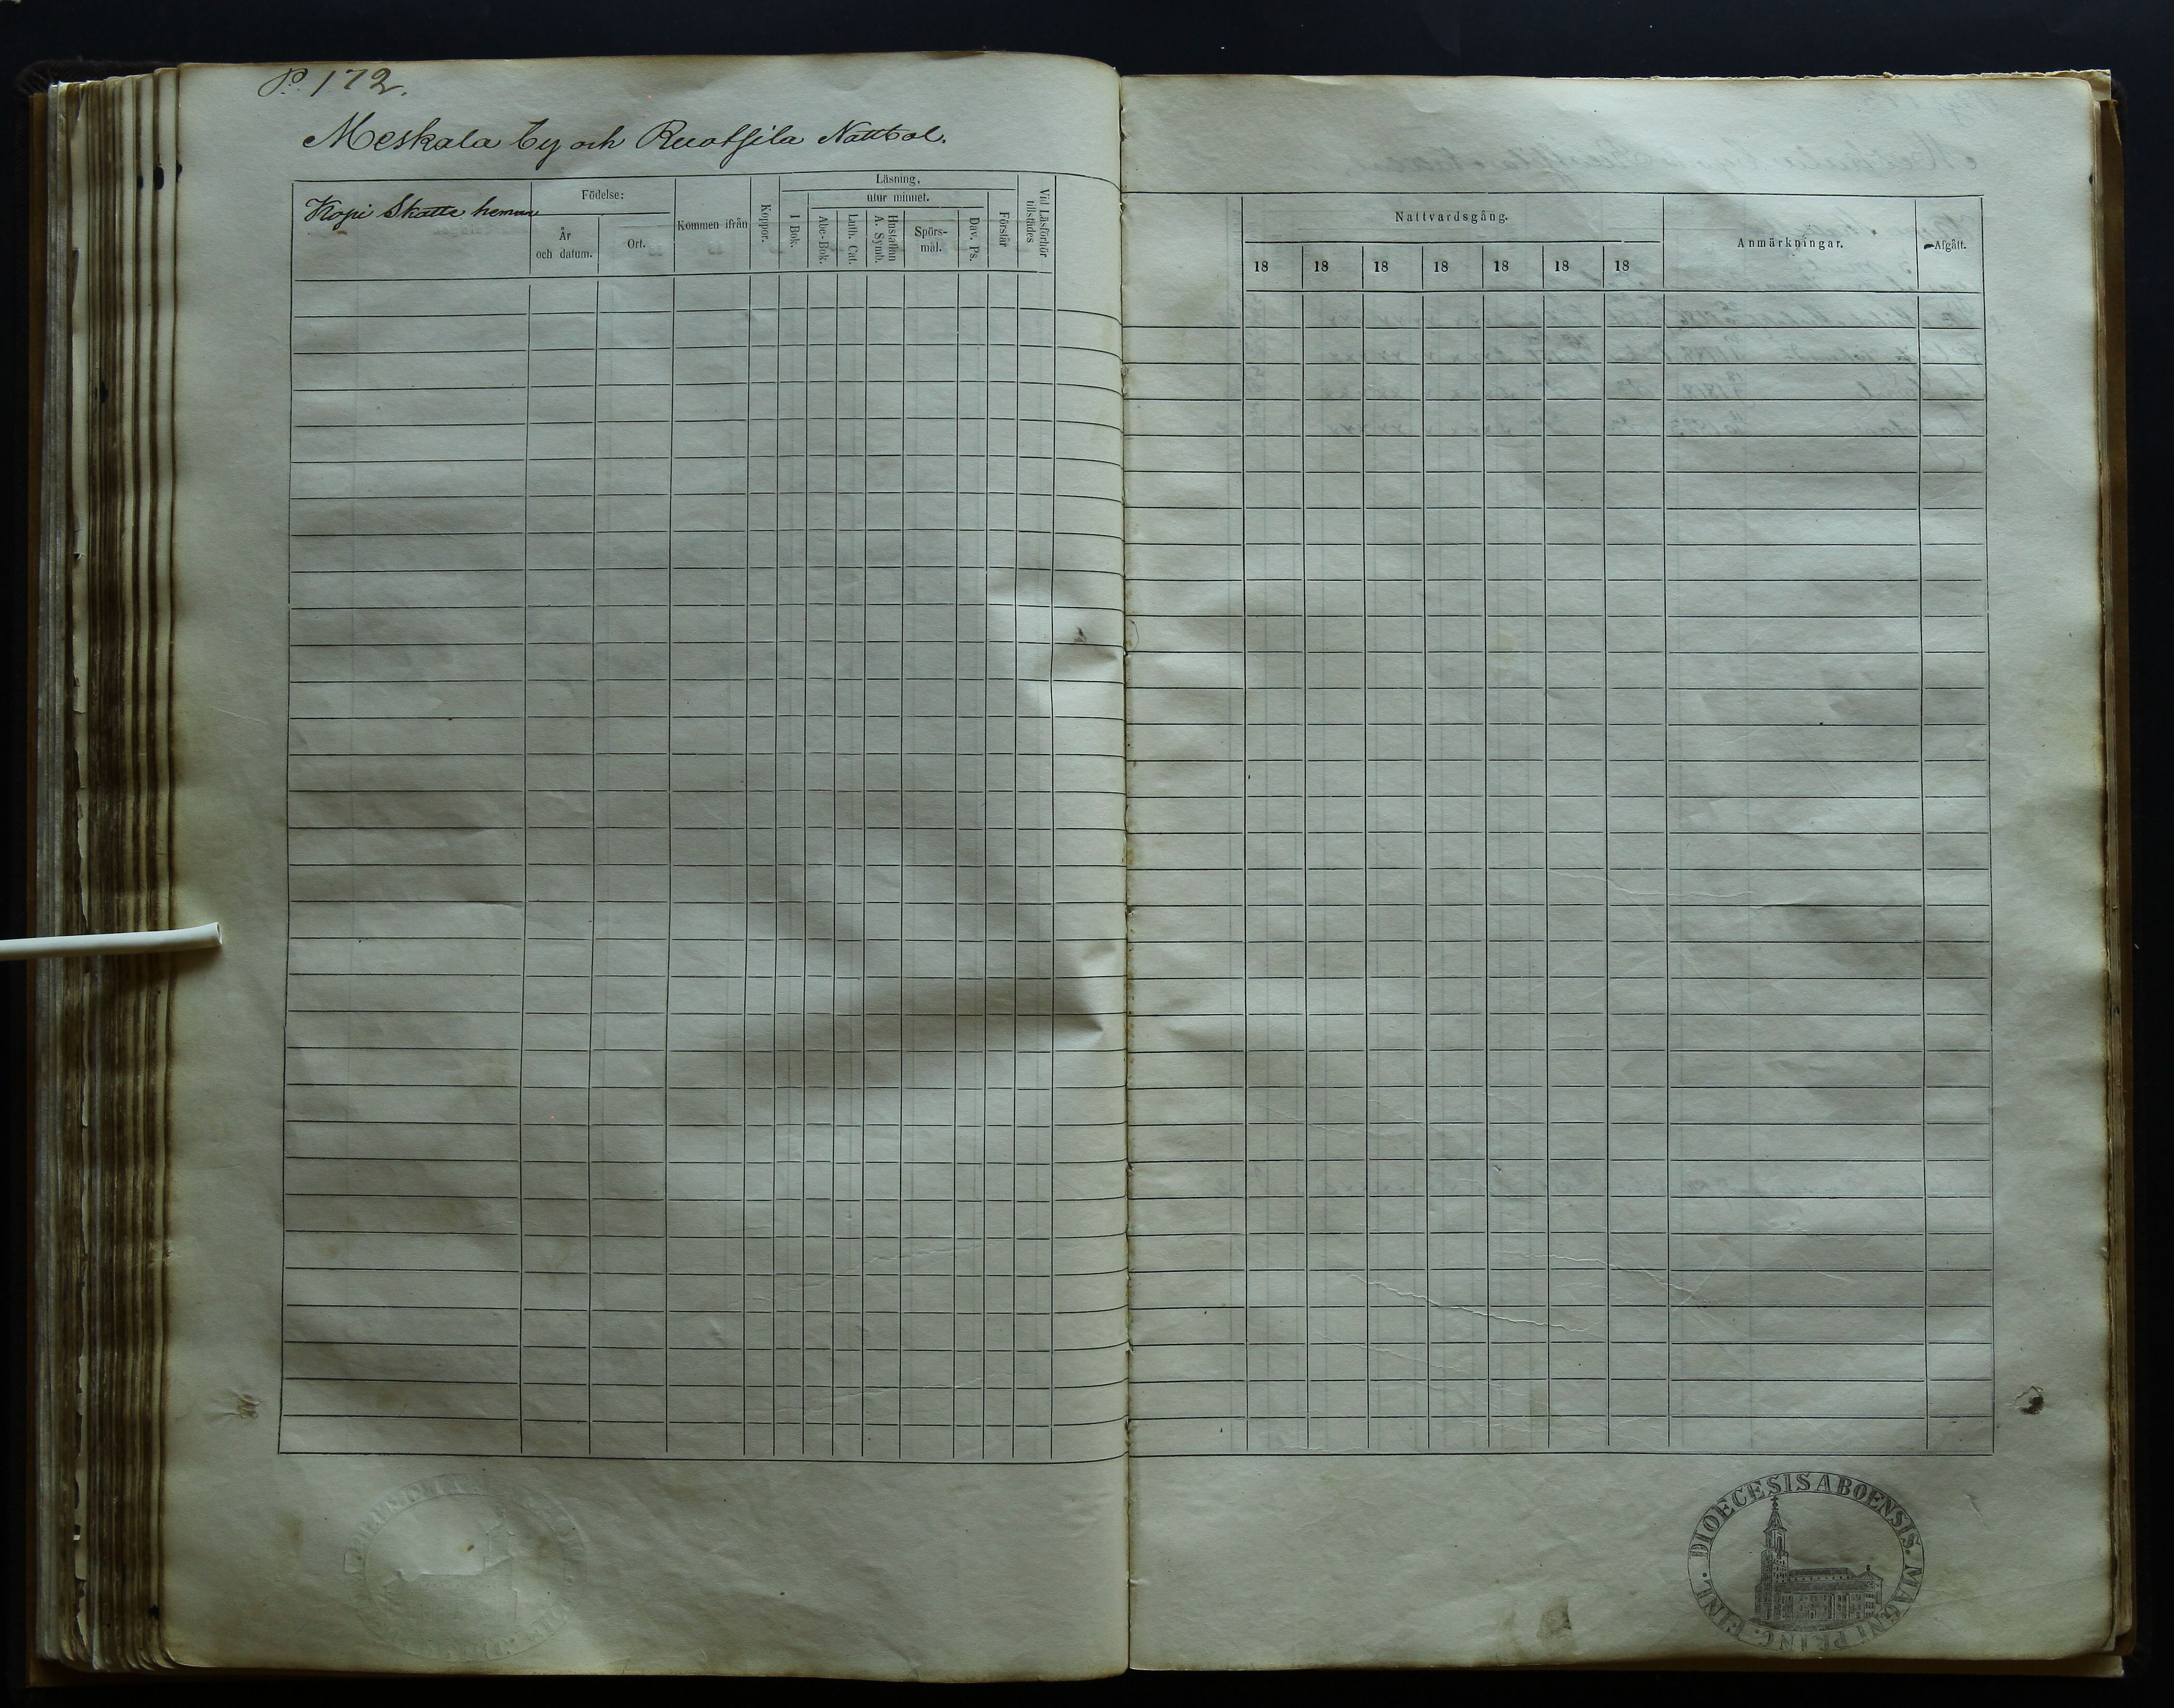 P. 172.
Meskala by och Ruotsila Nattbol.
Kopi Skatte hemm
Födelse:
År och datum.
Ort.
Kommen ifrån
Koppor.
Läsning,
I Bok.
utur minnet.
Abc-Bok.
Luth. Cat.
Hustaflan A. Symb.
Spörs-
mål.
Dav. Ps.
Förstår
Vid Läsförhör tillstädes
Nattvardsgång.
18 18 18 18 18 18 18
Anmärkningar.
Afgått.
DIOECESIS ABOENSIS. MAGNI PRINC. FINL.